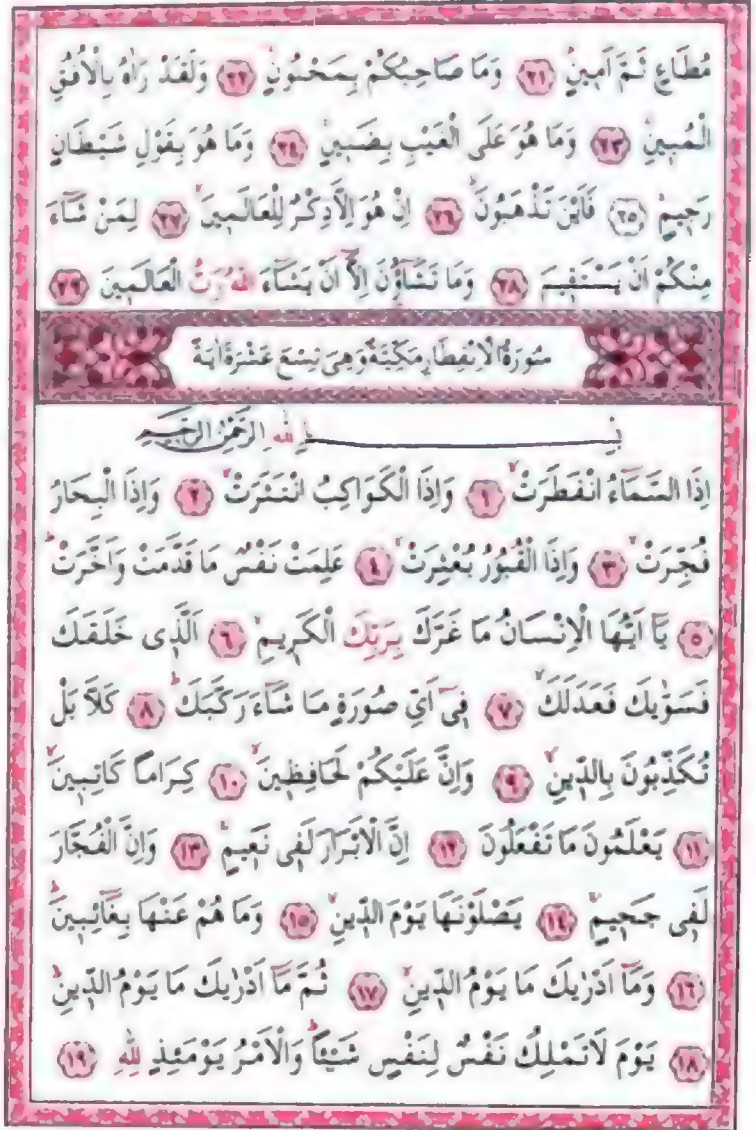 مُطَاعٍ ثَمَّ اَمٖينٍ ﴿٢١﴾ وَمَا صَاحِبُكُمْ بِمَجْنُونٍ ﴿٢٢﴾ وَلَقَدْ رَاٰهُ بِالْاُفُقِ
الْمُبٖينِ ﴿٢٣﴾ وَمَا هُوَ عَلَى الْغَيْبِ بِضَنٖينٍ ﴿٢٤﴾ وَمَا هُوَ بِقَوْلِ شَيْطَانٍ
رَجٖيمٍ ﴿٢٥﴾ فَاَيْنَ تَذْهَبُونَ ﴿٢٦﴾ اِنْ هُوَ اِلَّا ذِكْرٌ لِلْعَالَمٖينَ ﴿٢٧﴾ لِمَنْ شَٓاءَ
مِنْكُمْ اَنْ يَسْتَقٖيمَ ﴿٢٨﴾ وَمَا تَشَٓاؤُنَ اِلَّٓا اَنْ يَشَٓاءَ اللّٰهُ رَبُّ الْعَالَمٖينَ ﴿٢٩﴾
سُورَةُ الْاِنْفِطَارِ مَكِّيَّةٌ وَهِىَ تِسْعَ عَشْرَةَ اٰيَةً
بِسْمِ اللّٰهِ الرَّحْمٰنِ الرَّحٖيمِ
اِذَا السَّمَٓاءُ انْفَطَرَتْ ﴿١﴾ وَاِذَا الْكَوَاكِبُ انْتَثَرَتْ ﴿٢﴾ وَاِذَا الْبِحَارُ
فُجِّرَتْ ﴿٣﴾ وَاِذَا الْقُبُورُ بُعْثِرَتْ ﴿٤﴾ عَلِمَتْ نَفْسٌ مَا قَدَّمَتْ وَاَخَّرَتْ
﴿٥﴾ يَٓا اَيُّهَا الْاِنْسَانُ مَا غَرَّكَ بِرَبِّكَ الْكَرٖيمِ ﴿٦﴾ اَلَّذٖى خَلَقَكَ
فَسَوّٰيكَ فَعَدَلَكَ ﴿٧﴾ فٖٓى اَىِّ صُورَةٍ مَا شَٓاءَ رَكَّبَكَ ﴿٨﴾ كَلَّا بَلْ
تُكَذِّبُونَ بِالدّٖينِ ﴿٩﴾ وَاِنَّ عَلَيْكُمْ لَحَافِظٖينَ ﴿١٠﴾ كِرَامًا كَاتِبٖينَ
﴿١١﴾ يَعْلَمُونَ مَا تَفْعَلُونَ ﴿١٢﴾ اِنَّ الْاَبْرَارَ لَفٖى نَعٖيمٍ ﴿١٣﴾ وَاِنَّ الْفُجَّارَ
لَفٖى جَحٖيمٍ ﴿١٤﴾ يَصْلَوْنَهَا يَوْمَ الدّٖينِ ﴿١٥﴾ وَمَا هُمْ عَنْهَا بِغَٓائِبٖينَ
﴿١٦﴾ وَمَٓا اَدْرٰيكَ مَا يَوْمُ الدّٖينِ ﴿١٧﴾ ثُمَّ مَٓا اَدْرٰيكَ مَا يَوْمُ الدّٖينِ
﴿١٨﴾ يَوْمَ لَا تَمْلِكُ نَفْسٌ لِنَفْسٍ شَيْـًٔا وَالْاَمْرُ يَوْمَئِذٍ لِلّٰهِ ﴿١٩﴾